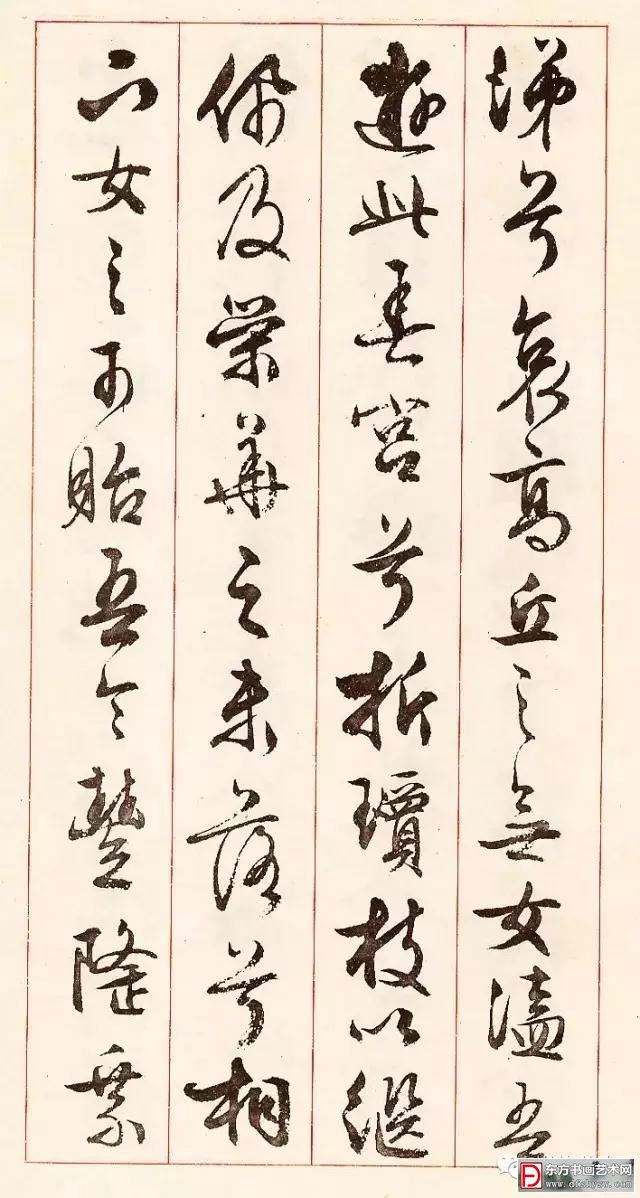 涕兮哀高丘之無女溘吾
遊此春宮兮折瓊枝以繼
佩及榮華之未落兮相
下女之可貽吾令豐隆乘
东方书画艺术网
www.dfshysw.com